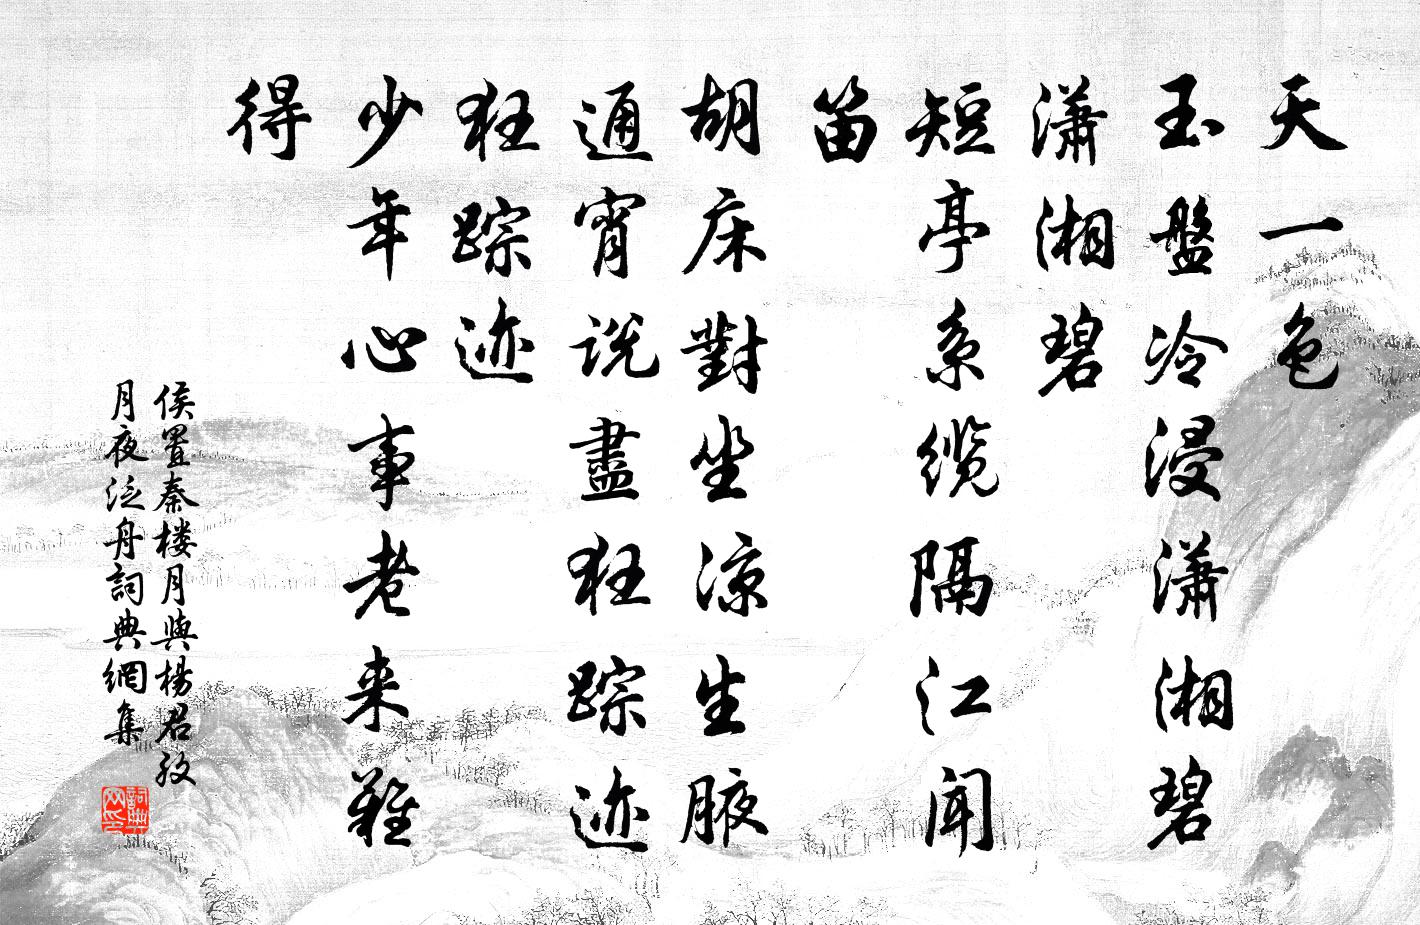 天一色
玉盤冷浸瀟湘碧
瀟湘碧
短亭系缆隔江闻
笛
胡床對坐凉生腋
通宵说盡狂踪迹
狂踪迹
少年心事老来難
得
侯置秦楼月與杨君孜
月夜泛舟詞典網集